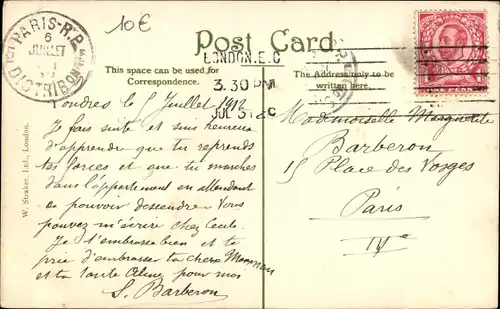 PARIS-R.P.
6
JUILLET
DISTRIBON
10€
Post Card
LONDON.E.C
3.30 PM
JUL 5 12
This space can be used for
Correspondence.
The Address only to be
written here.
W. Straker, Ltd., London.
Londres le 5 Juillet 1912
Je suis suite et suis heureux
d'apprendre que tu reprends
tes forces et que tu marches
dans l'appartement en attendant
de pouvoir descendre. Vous
pouvez m'écrire chez Cecile.
Je t'embrasse bien et te
prie d'embrasser ta chère Maman
et ta tante Aline pour moi
S. Barberon
Mademoiselle Marguerite
Barberon
15 Place des Vosges
Paris
IVe